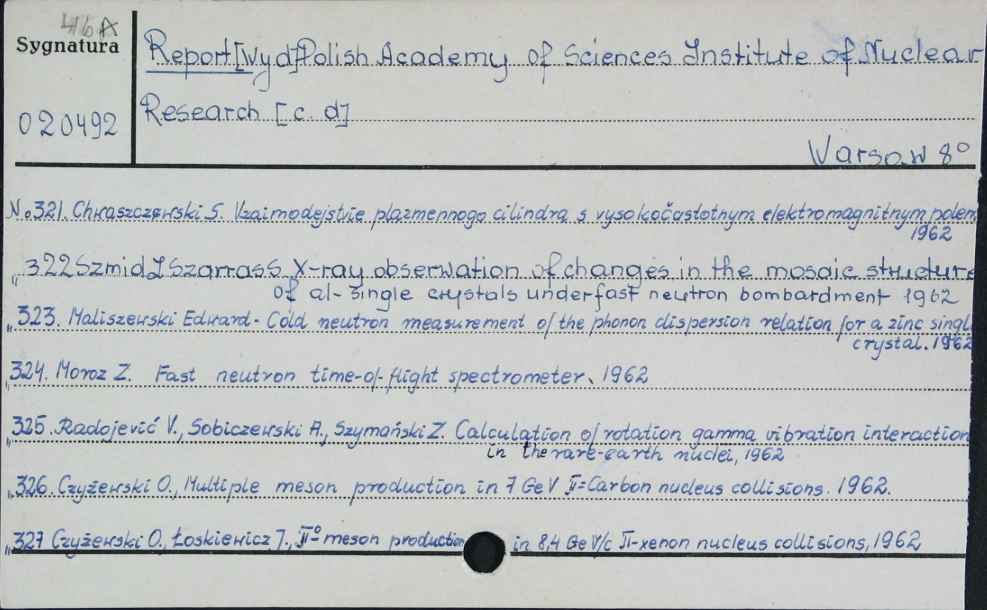 416 A
Sygnatura
020492
Report [Wyd] Polish Academy of Sciences Institute of Nuclear
Research [c. d]
Warsaw 8°
No 321. Chwaszczewski S. Vzaimodejstvie plazmennogo cilindra s vysokočastotnym elektromagnitnym polem
1962
„ 322 Szmid Z Szarras S. X-ray obserwation of changes in the mosaic structure
of al- single crystals under fast neutron bombardment 1962
„ 323. Maliszewski Edward - Cold neutron measurement of the phonon dispersion relation for a zinc singl
crystal. 1962
„ 324. Moroz Z. Fast neutron time-of-flight spectrometer. 1962
„ 325. Radojević V., Sobiczewski A., Szymański Z. Calculation of rotation gamma vibration interaction
in the rare-earth nuclei, 1962
„ 326. Czyżewski O., Multiple meson production in 7 GeV II= Carbon nucleus collisions. 1962.
„ 327 Czyżewski O., Łoskiewicz J., II-° meson production in 8,4 GeV/c II-xenon nucleus collisions, 1962